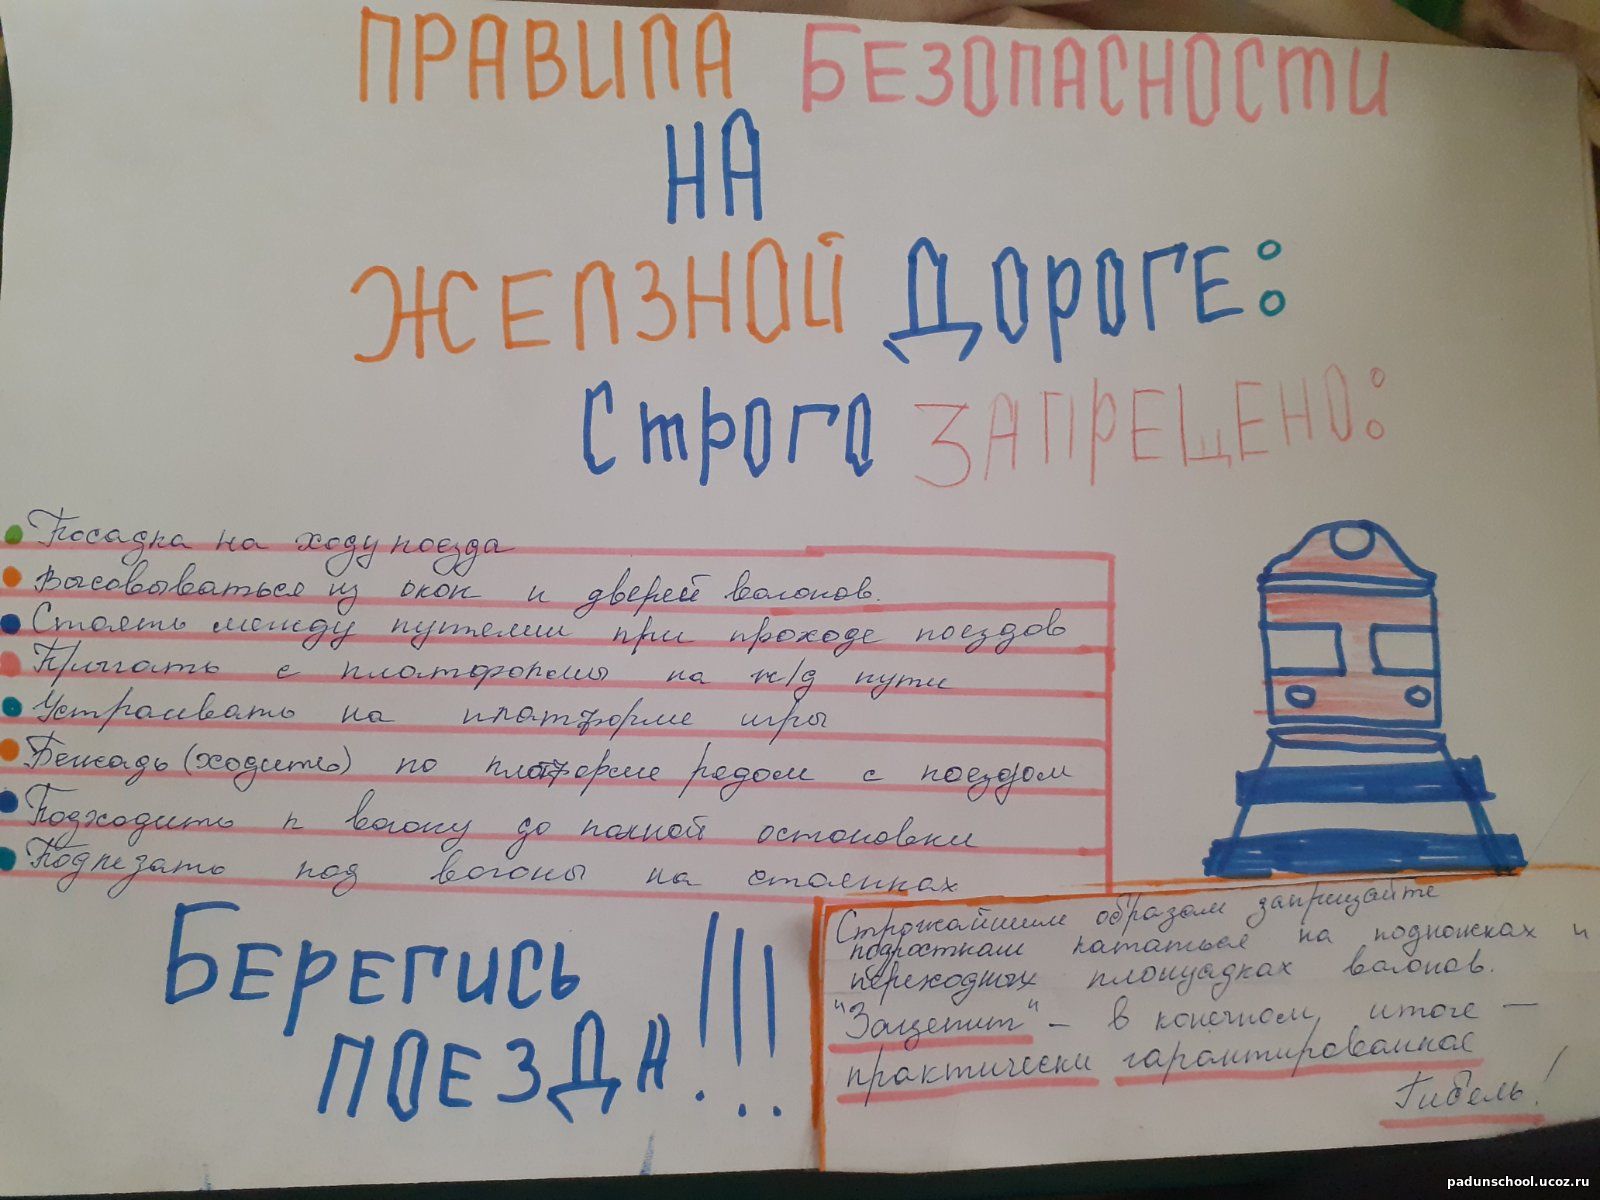 ПРАВИЛА БЕЗОПАСНОСТИ
НА
ЖЕЛЗНОЙ ДОРОГЕ:
Строго ЗАПРЕЩЕНО:
Посадка на ходу поезда
Высовываться из окон и дверей вагонов.
Стоять между путями при проходе поездов
Прыгать с платформы на ж/д пути
Устраивать на платформе игры
Бежадь (ходить) по платформе рядом с поездом
Подходить к вагону до полной остановки
Подлезать под вагоны на стоянках
БЕРЕГИСЬ
ПОЕЗДА!!!
Строжайшим образом запрещайте
подросткам кататься на подножках и
переходных площадках вагонов.
"Зацепит" – в конечном итоге –
практически гарантированная
Гибель!
padunschool.ucoz.ru